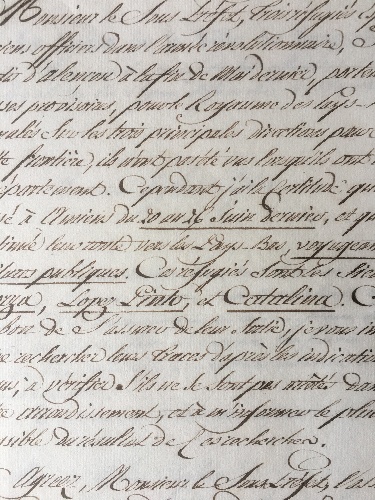 Monsieur le Sous Préfet, trois réfugiés es
ciens officiers dans l'armée révolutionnaire,
d'alençon à la fin de Mai dernier, porteu
provisoires, pour le Royaume des Pays-
nalés sur les trois principales directions pour
frontière, ils n'ont point
département. Cependant, j'ai la certitude qu
à Amiens du 20 au 26 Juin dernier, et qu
tinué leur route vers les Pays-Bas, voyagean
publiques. Ces réfugiés sont les
Lopez Pinto, et Catalina.
de s'assurer de leur sortie, je vous in
rechercher leurs traces d'après les indicatio
à vérifier s'ils ne se sont pas arrêtés dan
arrondissement, et à m'informer le plu
ssible du résultat de ces recherches.
Agréez, Monsieur le Sous Préfet, l'as